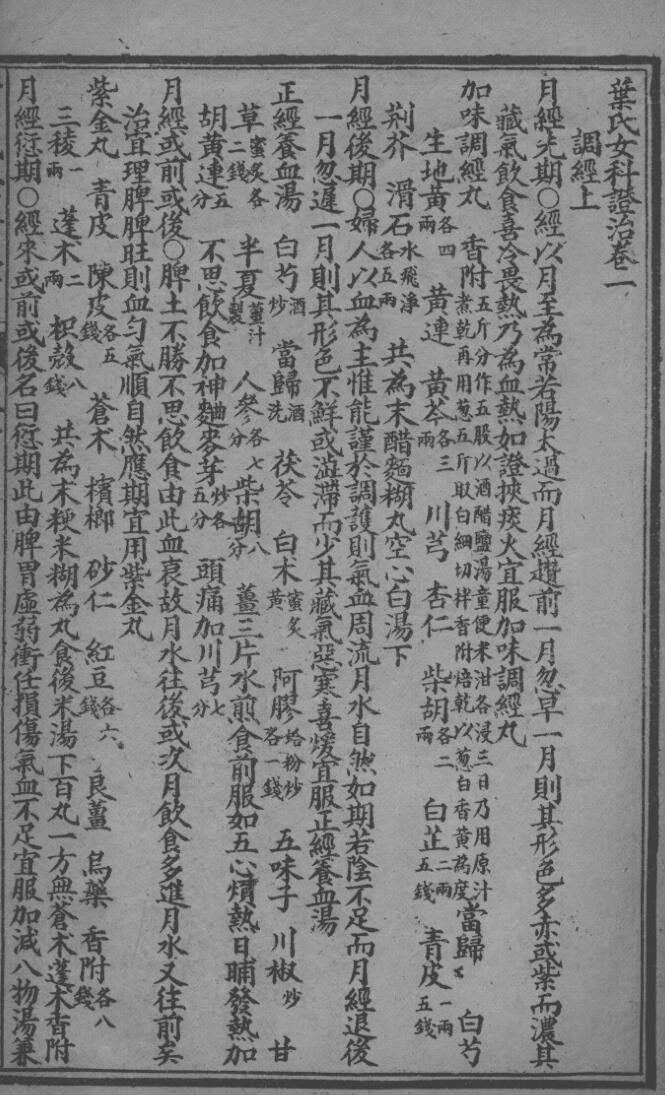 葉氏女科證治卷一
調經上
月經先期〇經以月至為常若陽太過而月經趲前一月忽早一月則其形色多赤或紫而濃其
臟氣飲食喜冷畏熱乃為血熱如證挾痰火宜服加味調經丸
加味調經丸 香附五斤分作五股以酒醋鹽湯童便米泔各浸三日乃用原汁煮乾再用葱五斤取白細切拌香附焙乾以葱白香黃為度 當歸 白芍
生地黃各四兩 黃連 黃芩各三兩 川芎 杏仁 柴胡各二兩 白芷二兩五錢 青皮一兩五錢
荆芥 滑石水飛淨各五兩 共為末醋麵糊丸空心白湯下
月經後期〇婦人以血為主惟能謹於調護則氣血周流月水自然如期若陰不足而月經退後
一月忽遲一月則其形色不鮮或澁滯而少其臟氣惡寒喜煖宜服正經養血湯
正經養血湯 白芍酒炒 當歸酒洗 茯苓 白术蜜炙黃 阿膠蛤粉炒各一錢 五味子 川椒炒 甘
草蜜炙各二錢 半夏薑汁製 人參各七分 柴胡八分 薑三片水煎食前服如五心煩熱日晡發熱加
胡黃連五分 不思飲食加神麯麥芽炒各五分 頭痛加川芎七分
月經或前或後〇脾土不勝不思飲食由此血衰故月水往後或次月飲食多進月水又往前矣
治宜理脾脾旺則血勻氣順自然應期宜用紫金丸
紫金丸 青皮 陳皮各五錢 蒼术 檳榔 砂仁 紅豆各六錢 良薑 烏藥 香附各八錢
三稜一兩 蓬术二兩 枳殼八錢 共為末粳米糊為丸食後米湯下百丸一方無蒼术蓬术香附
月經愆期〇經來或前或後名曰愆期此由脾胃虛弱衝任損傷氣血不足宜服加減八物湯兼